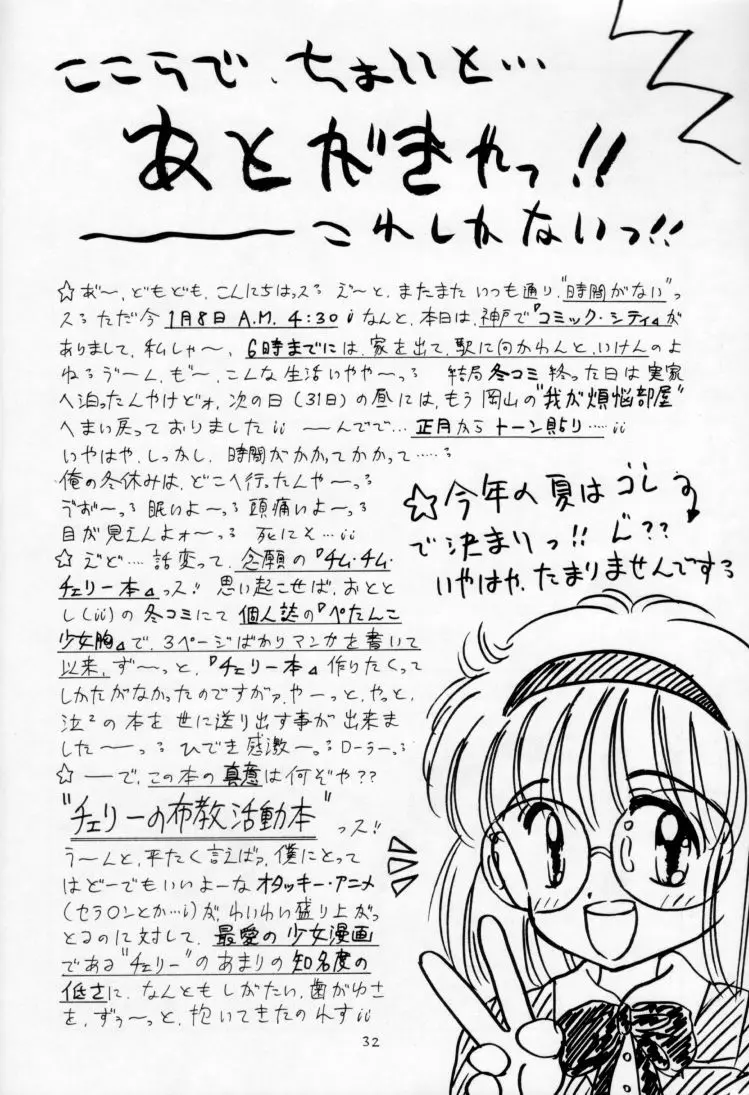 ここらで、ちょいと…
あとがきやっ!!
これしかないっ!!
☆あ゛〜、どもども、こんにちはッスぅ え゛〜と、またまた いつも通り、"時間がない"っ
スぅ ただ今 1月8日 A.M. 4:30 ¡ なんと、本日は、神戸で『コミック・シティ』が
ありまして、私しゃ〜、 6時までには、家を出て、駅に向かわんと、いけんのよ
ねぇ う゛ーん、も゛〜、こんな生活いやや〜っぅ 結局 冬コミ 終った日は 実家
へ泊ったんやけどォ、次の日(31日)の昼には、もう 岡山の"我が煩悩部屋"
へまい戻って おりました¡¡ 〜んでで… 正月からトーン貼り…¡¡
いやはや、しっかし、時間がかかってかかって……ぅ
俺の冬休みは、どこへ行ったんや〜っぅ
う゛お〜っぅ 眠いよ〜っぅ 頭痛いよ〜っぅ
目が見えんよォ〜っぅ 死にそ…¡¡
☆え゛ど… 話変って、念願の『チム・チム・
チェリー本』っス!! 思い起こせば、おとと
し(¡¡)の 冬コミにて 個人誌の『ぺたんこ
少女胸』で、3ページばかりマンガを書いて
以来、ず〜っと、『チェリー本』作りたくって
しかたがなかったのですがァ、やーっと、やっと、
泣²の本を 世に送り出す事が 出来ま
した〜っぅ ひでき 感激〜っぅ ローラーっぅ
☆ ーで、この本の真意は何ぞや??
"チェリーの布教活動本"っス!!
う〜んと、平たく言えばァ、僕にとって
はどーでもいいよーな オタッキー・アニメ
(セラ○ンとか…¡)が、わいわい盛り上がっ
とるのに対して、最愛の少女漫画
である"チェリー"のあまりの知名度の
低さに、なんとも しがたい、歯がゆさ
を、ずぅ〜っと、抱いてきたのれす¡¡
☆今年の夏はコレ
で決まりっ!! ん゛??
いやはや、たまりませんですぅ
32